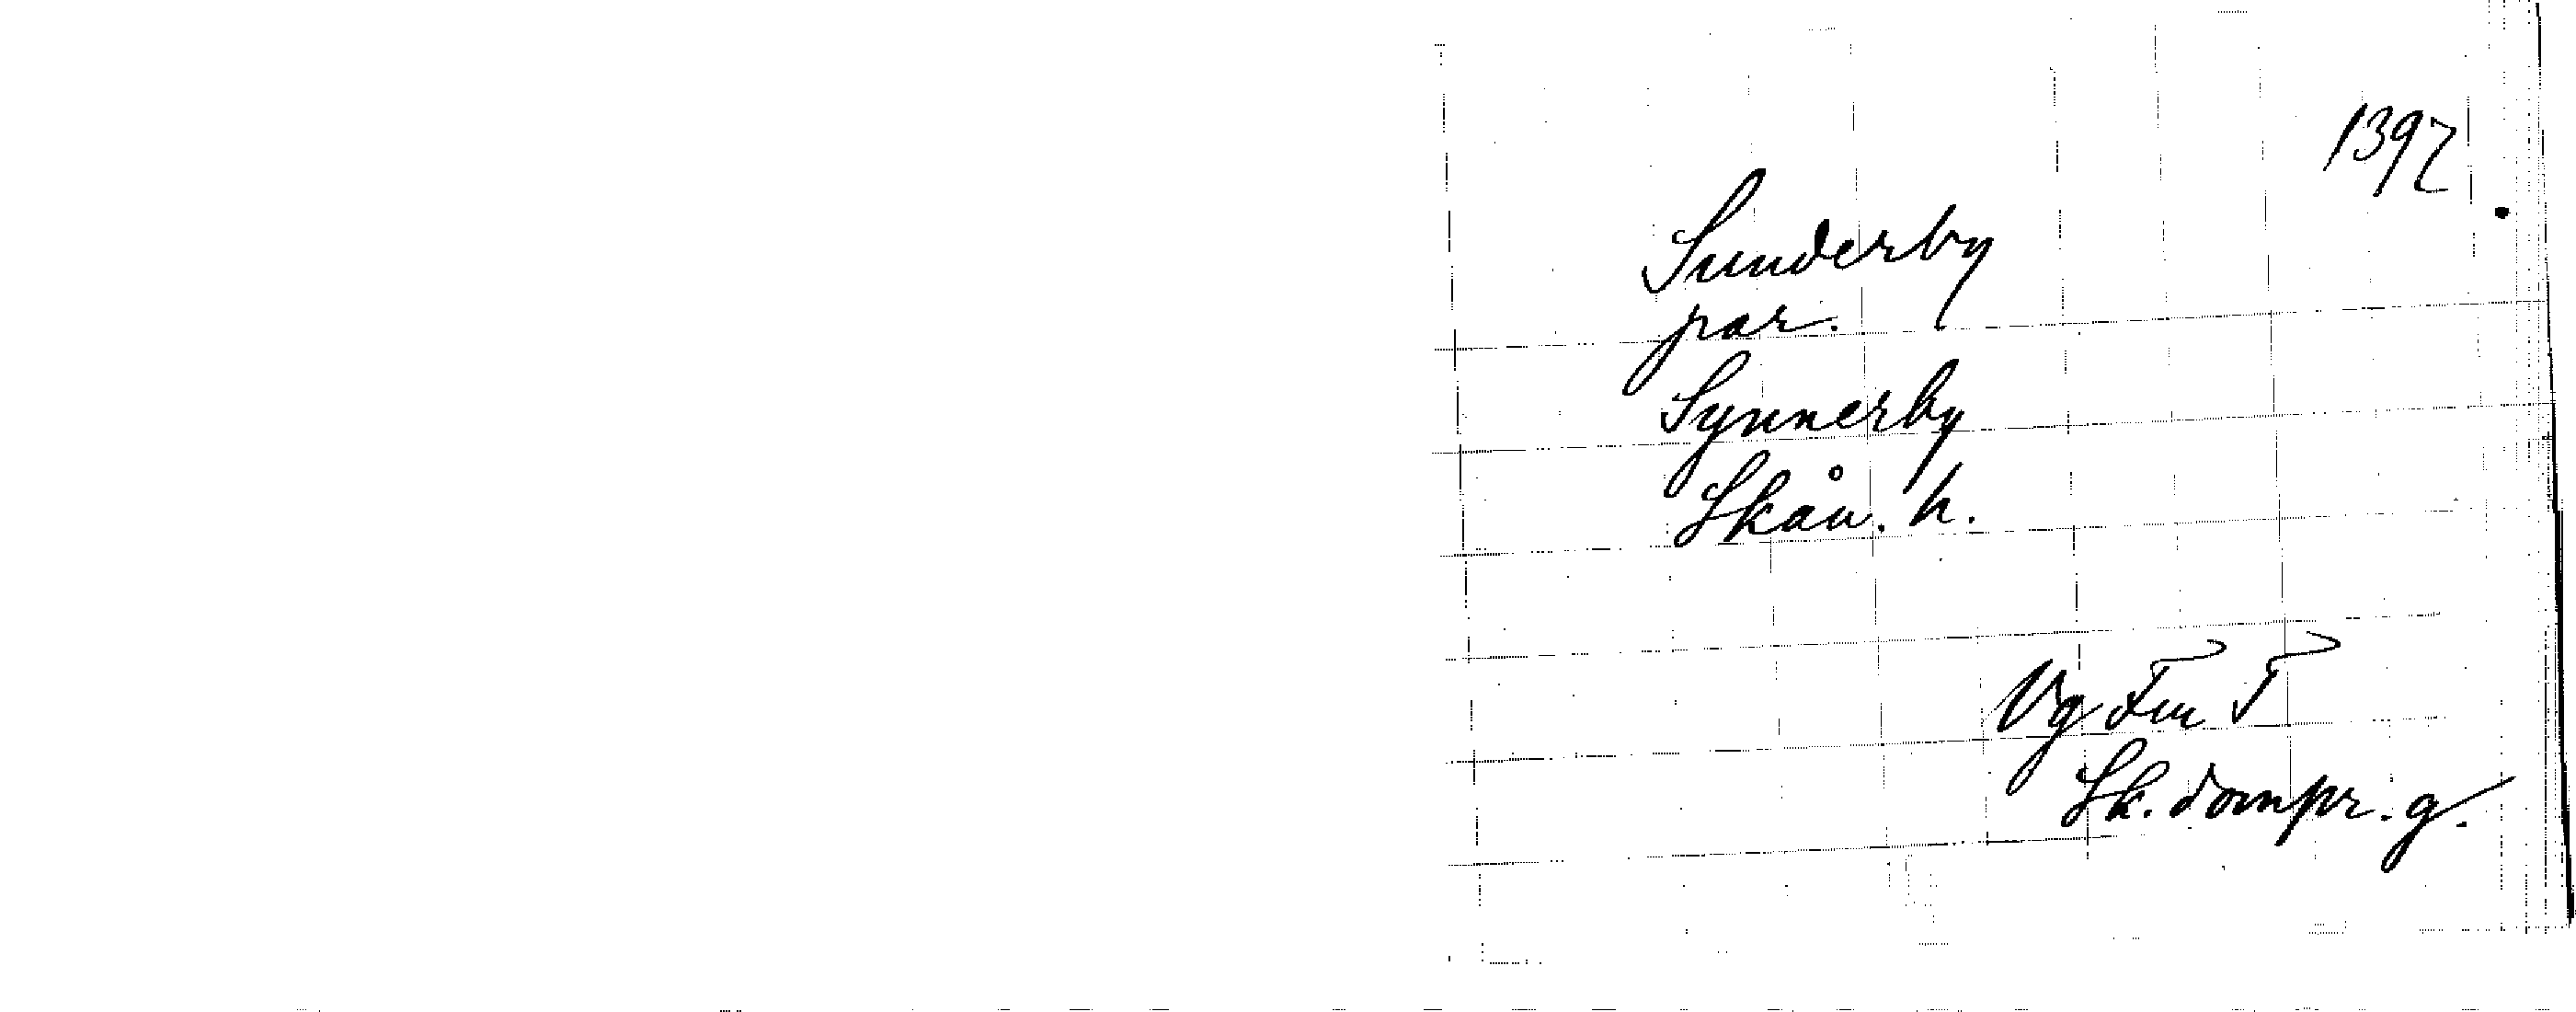 1397
Sunderby
par.
Synnerby
Skån. h.
Vg Fm T
Sk. dompr. g.